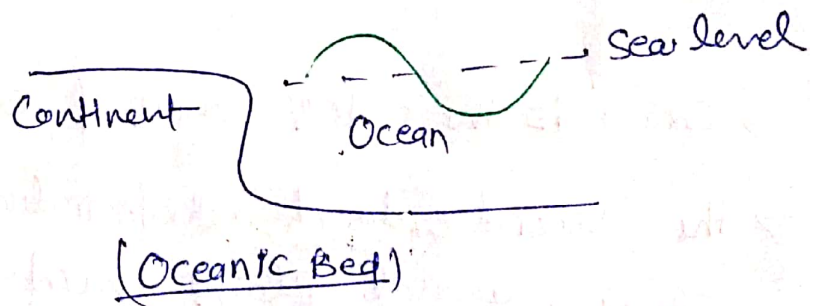 Sea level
Continent
Ocean
(Oceanic Bed)